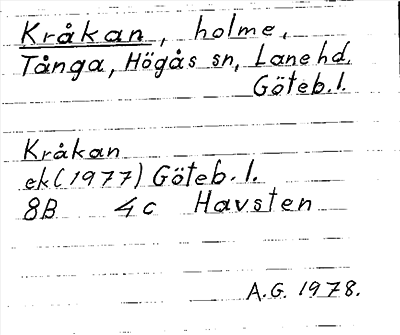 Kråkan, holme,
Tånga, Högås sn, Lane hd.
Göteb. l.
Kråkan
ek (1977) Göteb. l.
8B 4c Havsten
A.G. 1978.